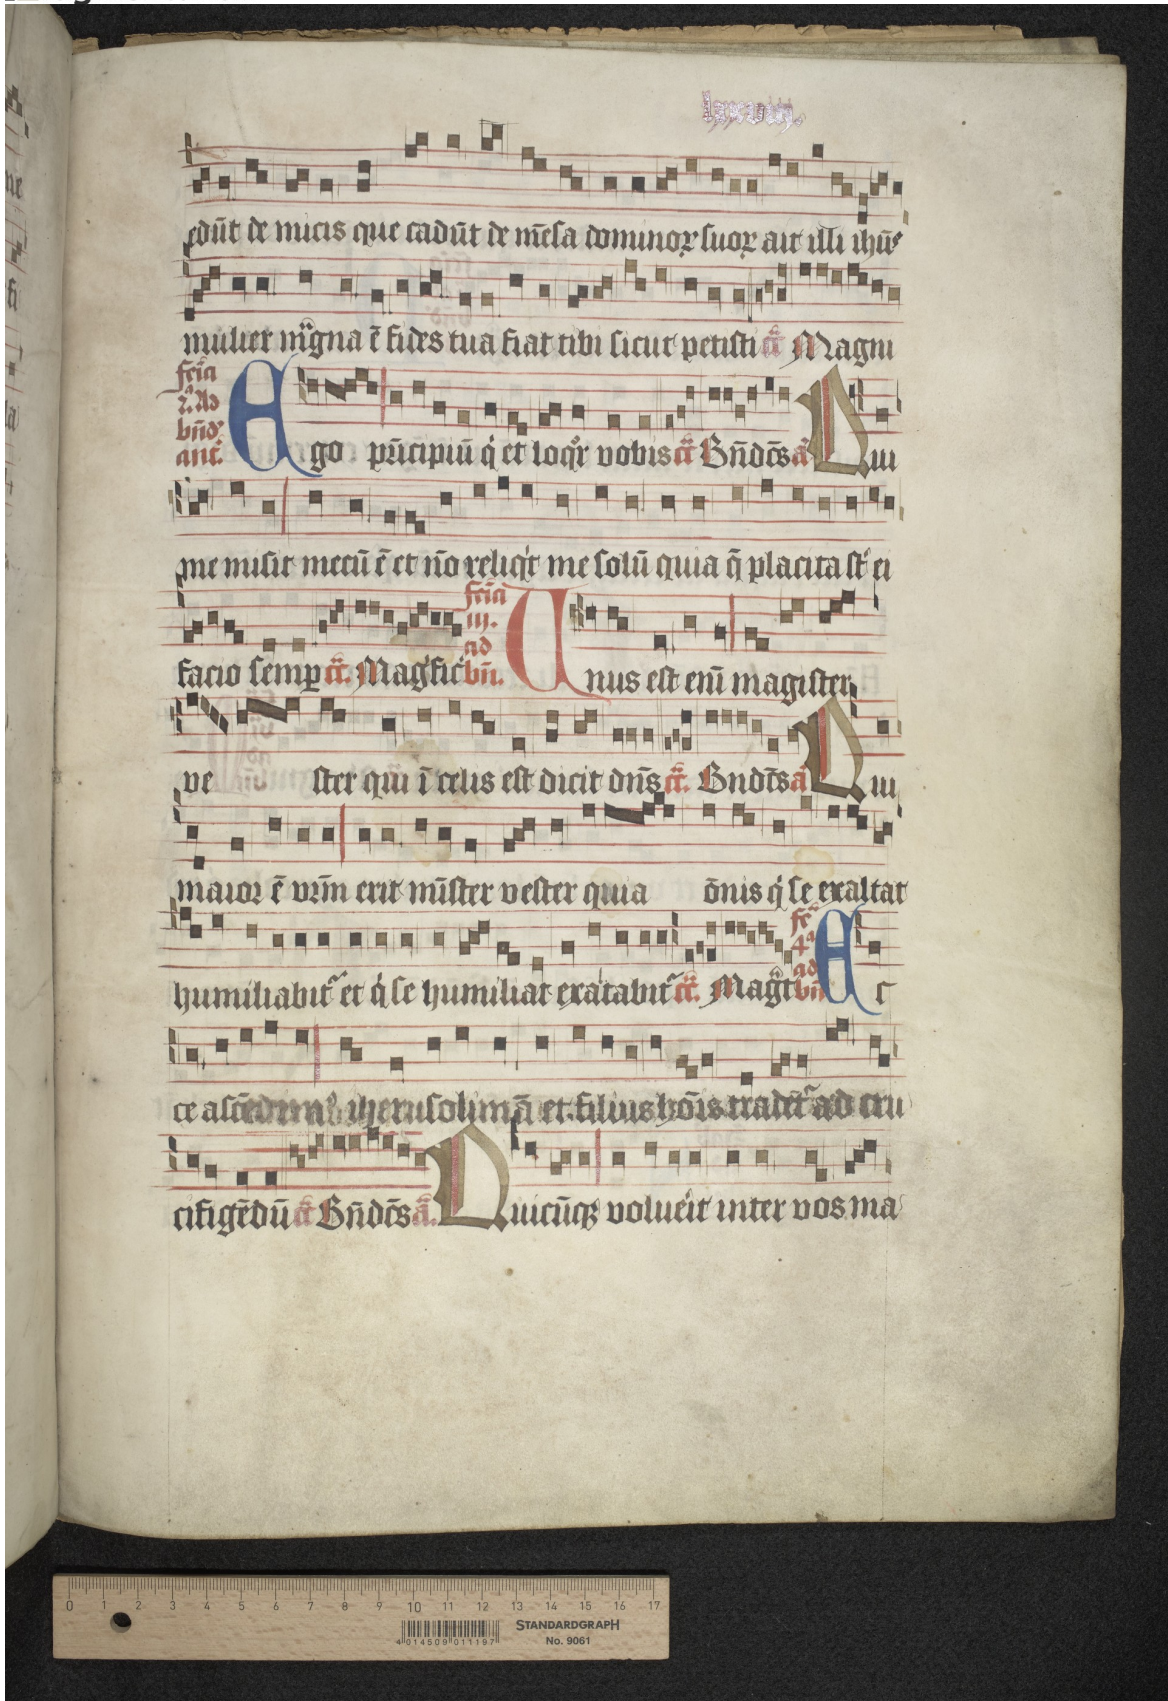 lxxviij.
edūt de micis que cadūt de mēsa dominoꝝ suoꝝ ait illi ihūs
mulier magna ē fides tua fiat tibi sicut petisti Magni
feria
2. Ad
bnd̄
ant.
Ego pͥncipiū qͥ et loqͦr vobis Bn̄dc̄s a Qui
me misit mecū ē et nō reliqͥt me solū quia q̄ placita st̄ ei
feria
iij.
ad
bn̄.
facio semꝑ Magͥficͣ Unus est enī magister
ve ster qui ī celis est dicit dn̄s Bndc̄s a Qui
maior ē vrm̄ erit mīster vester quia ōnis qͥ se exaltat
feͣ
4ͣ
ad
bn̄
humiliabitᷣ et qͥ se humiliat exatabitᷣ Magt Ec
ce ascēdimꝰ iherusolimā et filius hoīs tradetᷣ ad cru
cifigēdū Bn̄dc̄s a. Quicūqꝫ volueͥit inter vos ma
0 1 2 3 4 5 6 7 8 9 10 11 12 13 14 15 16 17
4 014509 011197
STANDARDGRAPH
No. 9061